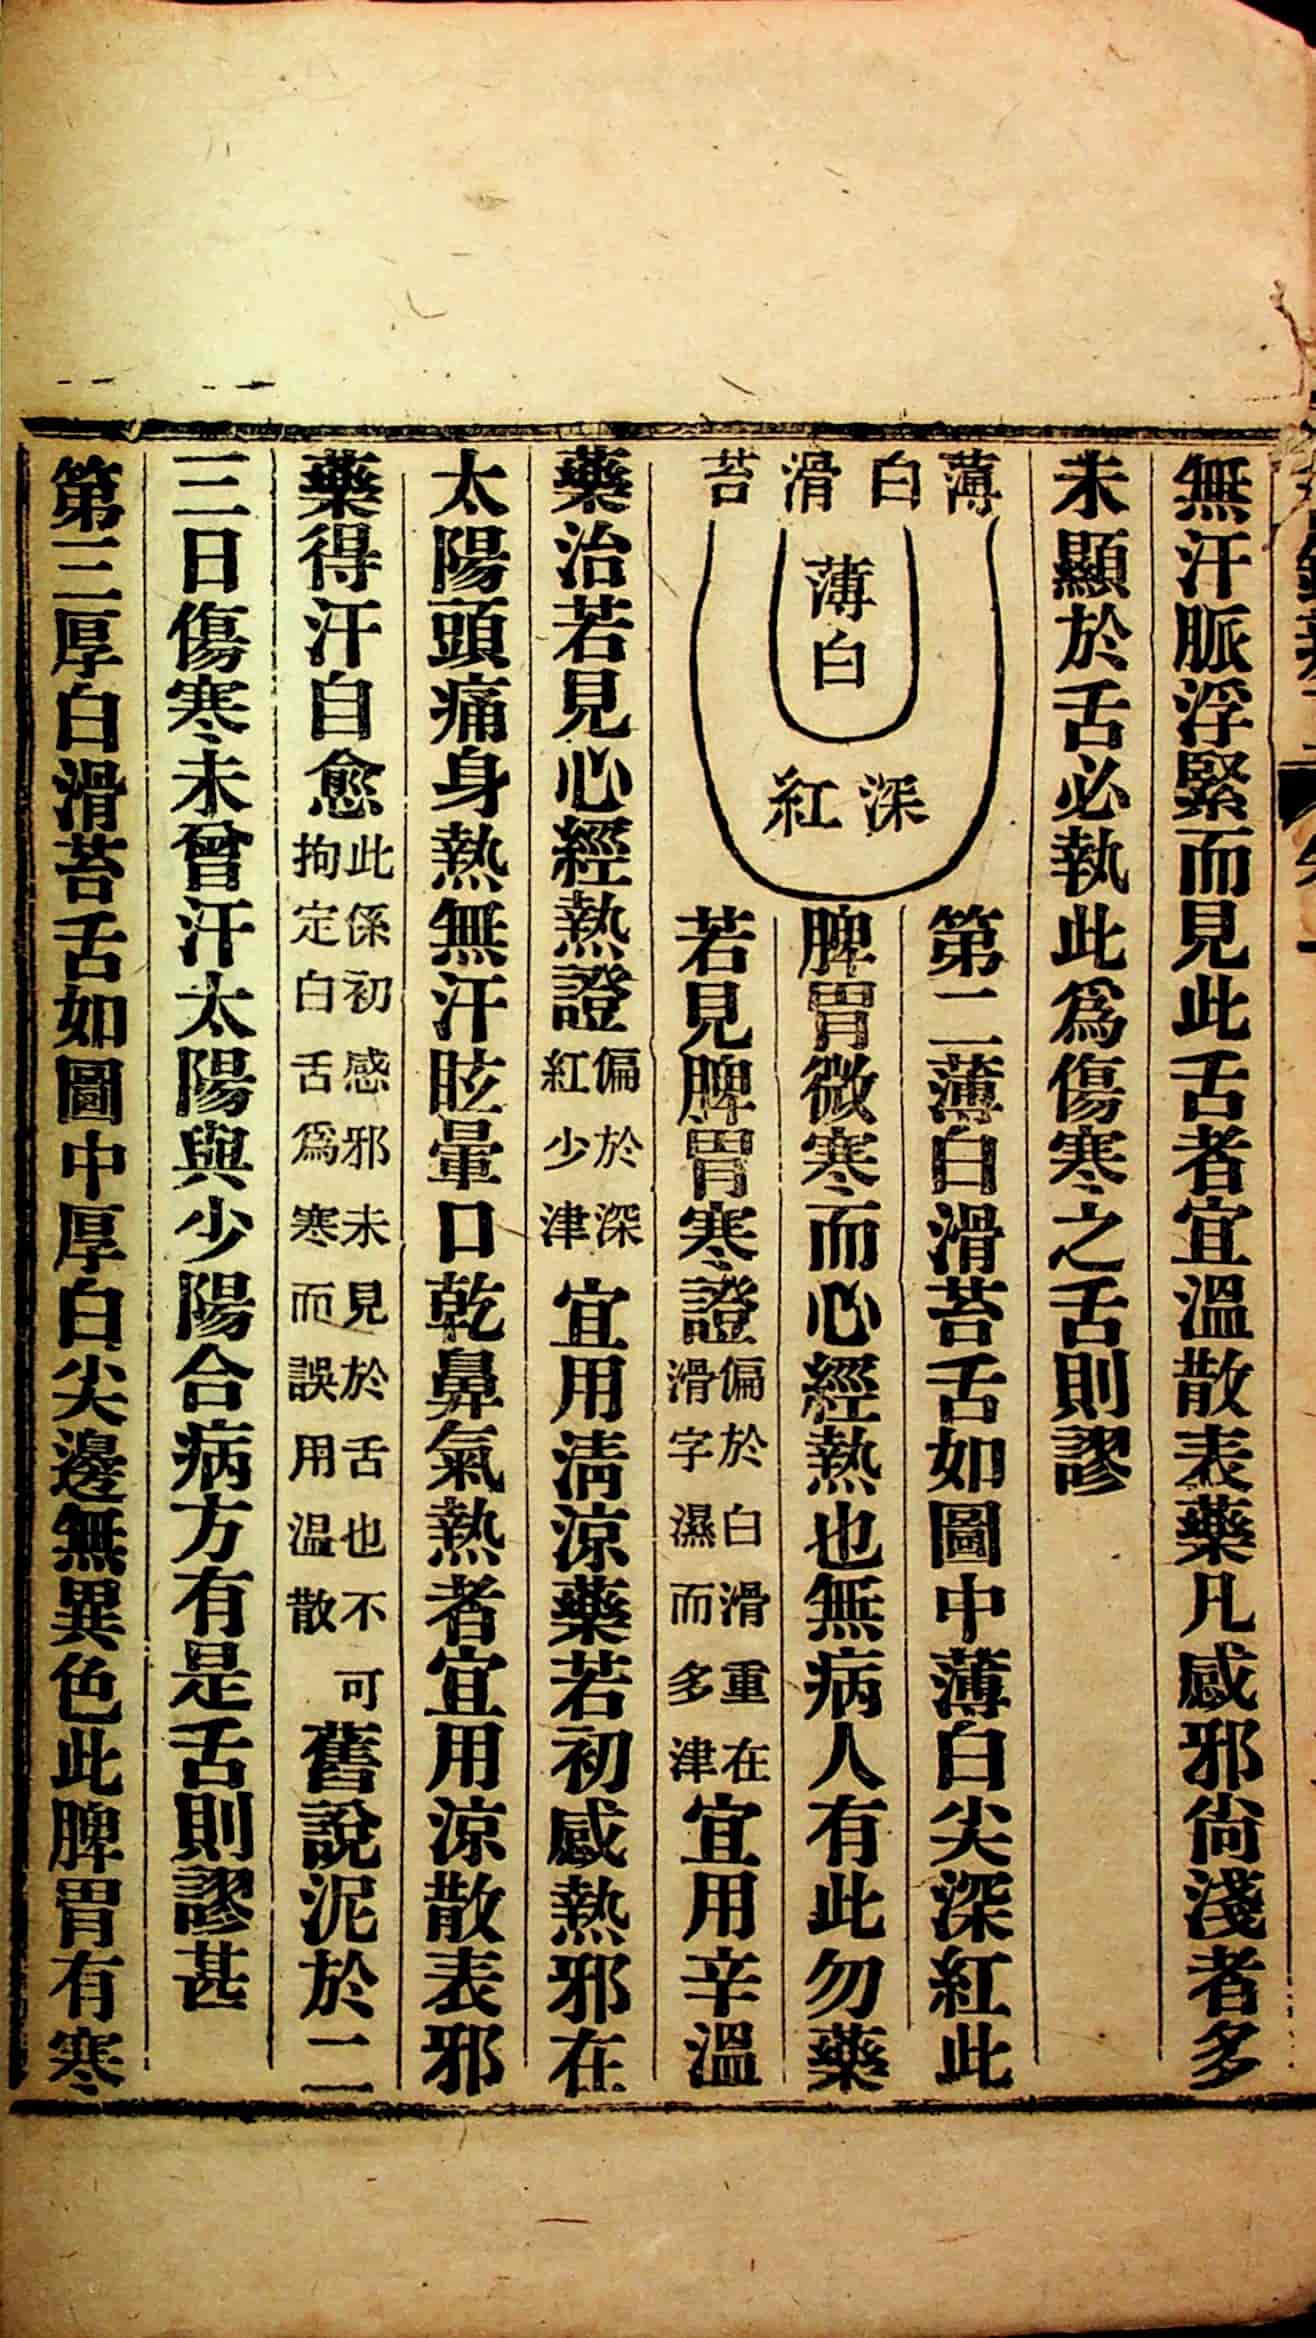 無汗脈浮緊而見此舌者宜溫散表藥凡感邪尙淺者多
未顯於舌必執此爲傷寒之舌則謬
薄白滑苔
薄白
深紅
第二薄白滑苔舌如圖中薄白尖深紅此
脾胃微寒而心經熱也無病人有此勿藥
若見脾胃寒證偏於白滑重在滑字濕而多津宜用辛溫
藥治若見心經熱證偏於深紅少津宜用淸涼藥若初感熱邪在
太陽頭痛身熱無汗眩暈口乾鼻氣熱者宜用涼散表邪
藥得汗自愈此係初感邪未見於舌也不可拘定白舌爲寒而誤用溫散舊說泥於二
三日傷寒未曾汗太陽與少陽合病方有是舌則謬甚
第三厚白滑苔舌如圖中厚白尖邊無異色此脾胃有寒